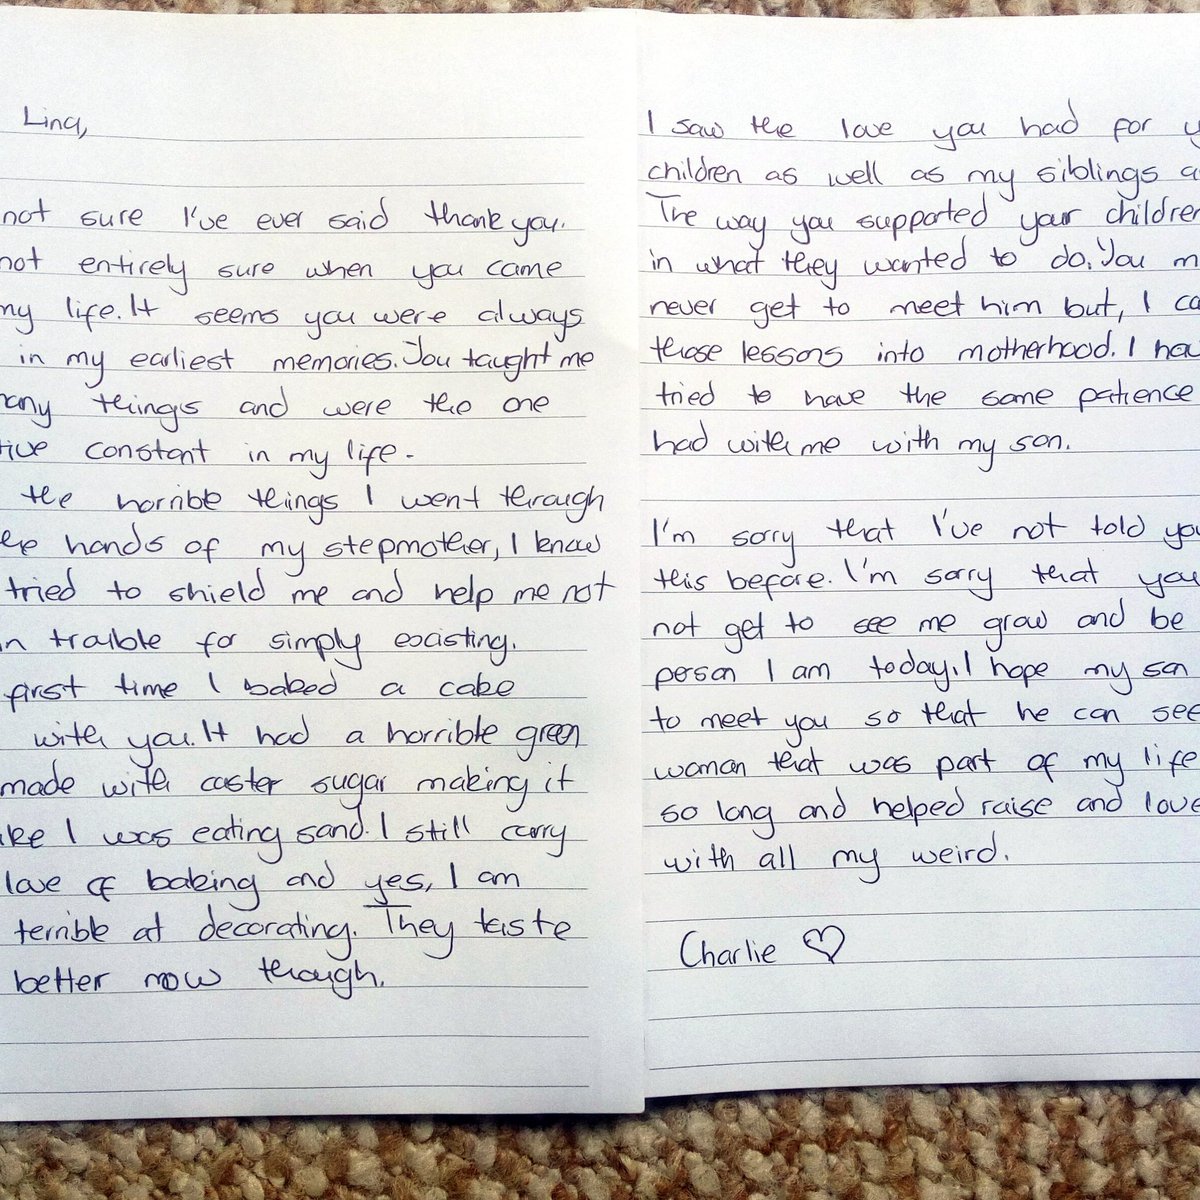 Lina,
not sure I've ever said thank you.
not entirely sure when you came
my life. It seems you were always
in my earliest memories. You taught me
any things and were the one
tive constant in my life.
the horrible things I went through
the hands of my stepmother, I know
tried to shield me and help me not
in trouble for simply existing.
first time I baked a cake
with you. It had a horrible green
made with caster sugar making it
ike I was eating sand. I still carry
love of baking and yes, I am
terrible at decorating. They taste
better now though.
I saw the love you had for y
children as well as my siblings a
The way you supported your children
in what they wanted to do. You m
never get to meet him but, I ca
those lessons into motherhood. I hav
tried to have the same patience
had with me with my son.
I'm sorry that I've not told you
this before. I'm sorry that you
not get to see me grow and be
person I am today. I hope my son
to meet you so that he can see
woman that was part of my life
so long and helped raise and love
with all my weird.
Charlie